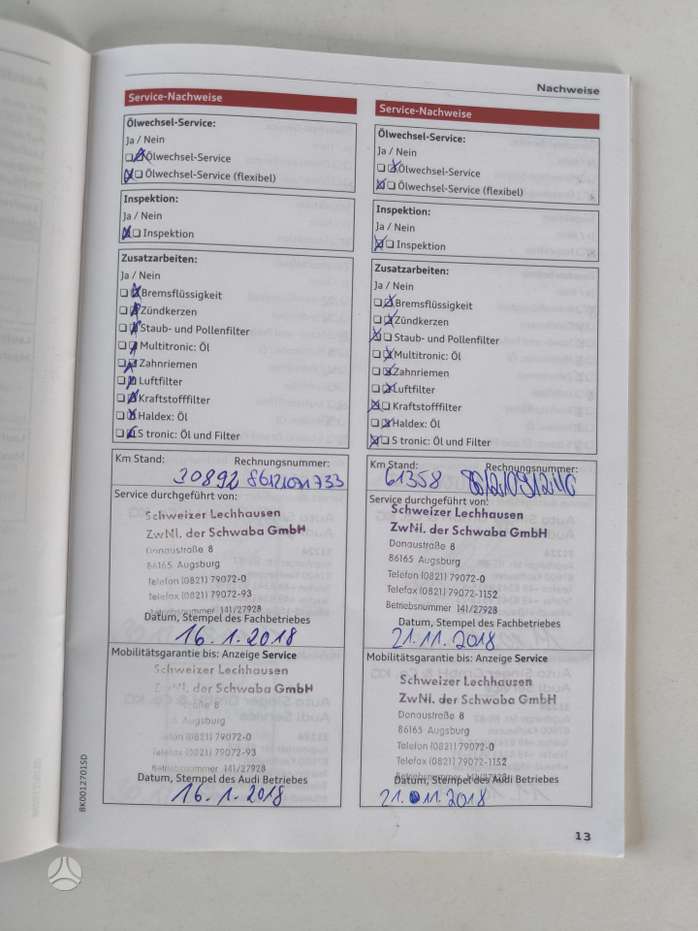 Nachweise
Service-Nachweise
Ölwechsel-Service:
Ja / Nein
Ölwechsel-Service
Ölwechsel-Service (flexibel)
Inspektion:
Ja / Nein
Inspektion
Zusatzarbeiten:
Ja / Nein
Bremsflüssigkeit
Zündkerzen
Staub- und Pollenfilter
Multitronic: Öl
Zahnriemen
Luftfilter
Kraftstofffilter
Haldex: Öl
S tronic: Öl und Filter
Km Stand: Rechnungsnummer:
30892 86121071733
Service durchgeführt von:
Schweizer Lechhausen
ZwNl. der Schwaba GmbH
Donaustraße 8
86165 Augsburg
Telefon (0821) 79072-0
Telefax (0821) 79072-93
Betriebsnummer 141/27928
Datum, Stempel des Fachbetriebes
16.1.2018
Mobilitätsgarantie bis: Anzeige Service
Schweizer Lechhausen
ZwNl. der Schwaba GmbH
8
Augsburg
(0821) 79072-0
Telefax (0821) 79072-93
Betriebsnummer 141/27928
Datum, Stempel des Audi Betriebes
16.1.2018
Service-Nachweise
Ölwechsel-Service:
Ja / Nein
Ölwechsel-Service
Ölwechsel-Service (flexibel)
Inspektion:
Ja / Nein
Inspektion
Zusatzarbeiten:
Ja / Nein
Bremsflüssigkeit
Zündkerzen
Staub- und Pollenfilter
Multitronic: Öl
Zahnriemen
Luftfilter
Kraftstofffilter
Haldex: Öl
S tronic: Öl und Filter
Km Stand: Rechnungsnummer:
61358
Service durchgeführt von:
Schweizer Lechhausen
ZwNl. der Schwaba GmbH
Donaustraße 8
86165 Augsburg
Telefon (0821) 79072-0
Telefax (0821) 79072-1152
Betriebsnummer 141/27928
Datum, Stempel des Fachbetriebes
21.11.2018
Mobilitätsgarantie bis: Anzeige Service
Schweizer Lechhausen
ZwNl. der Schwaba GmbH
Donaustraße 8
86165 Augsburg
Telefon (0821) 79072-0
Telefax (0821) 79072-1152
Betriebsnummer 141/27928
Datum, Stempel des Audi Betriebes
21.11.2018
8K0012701SD
13